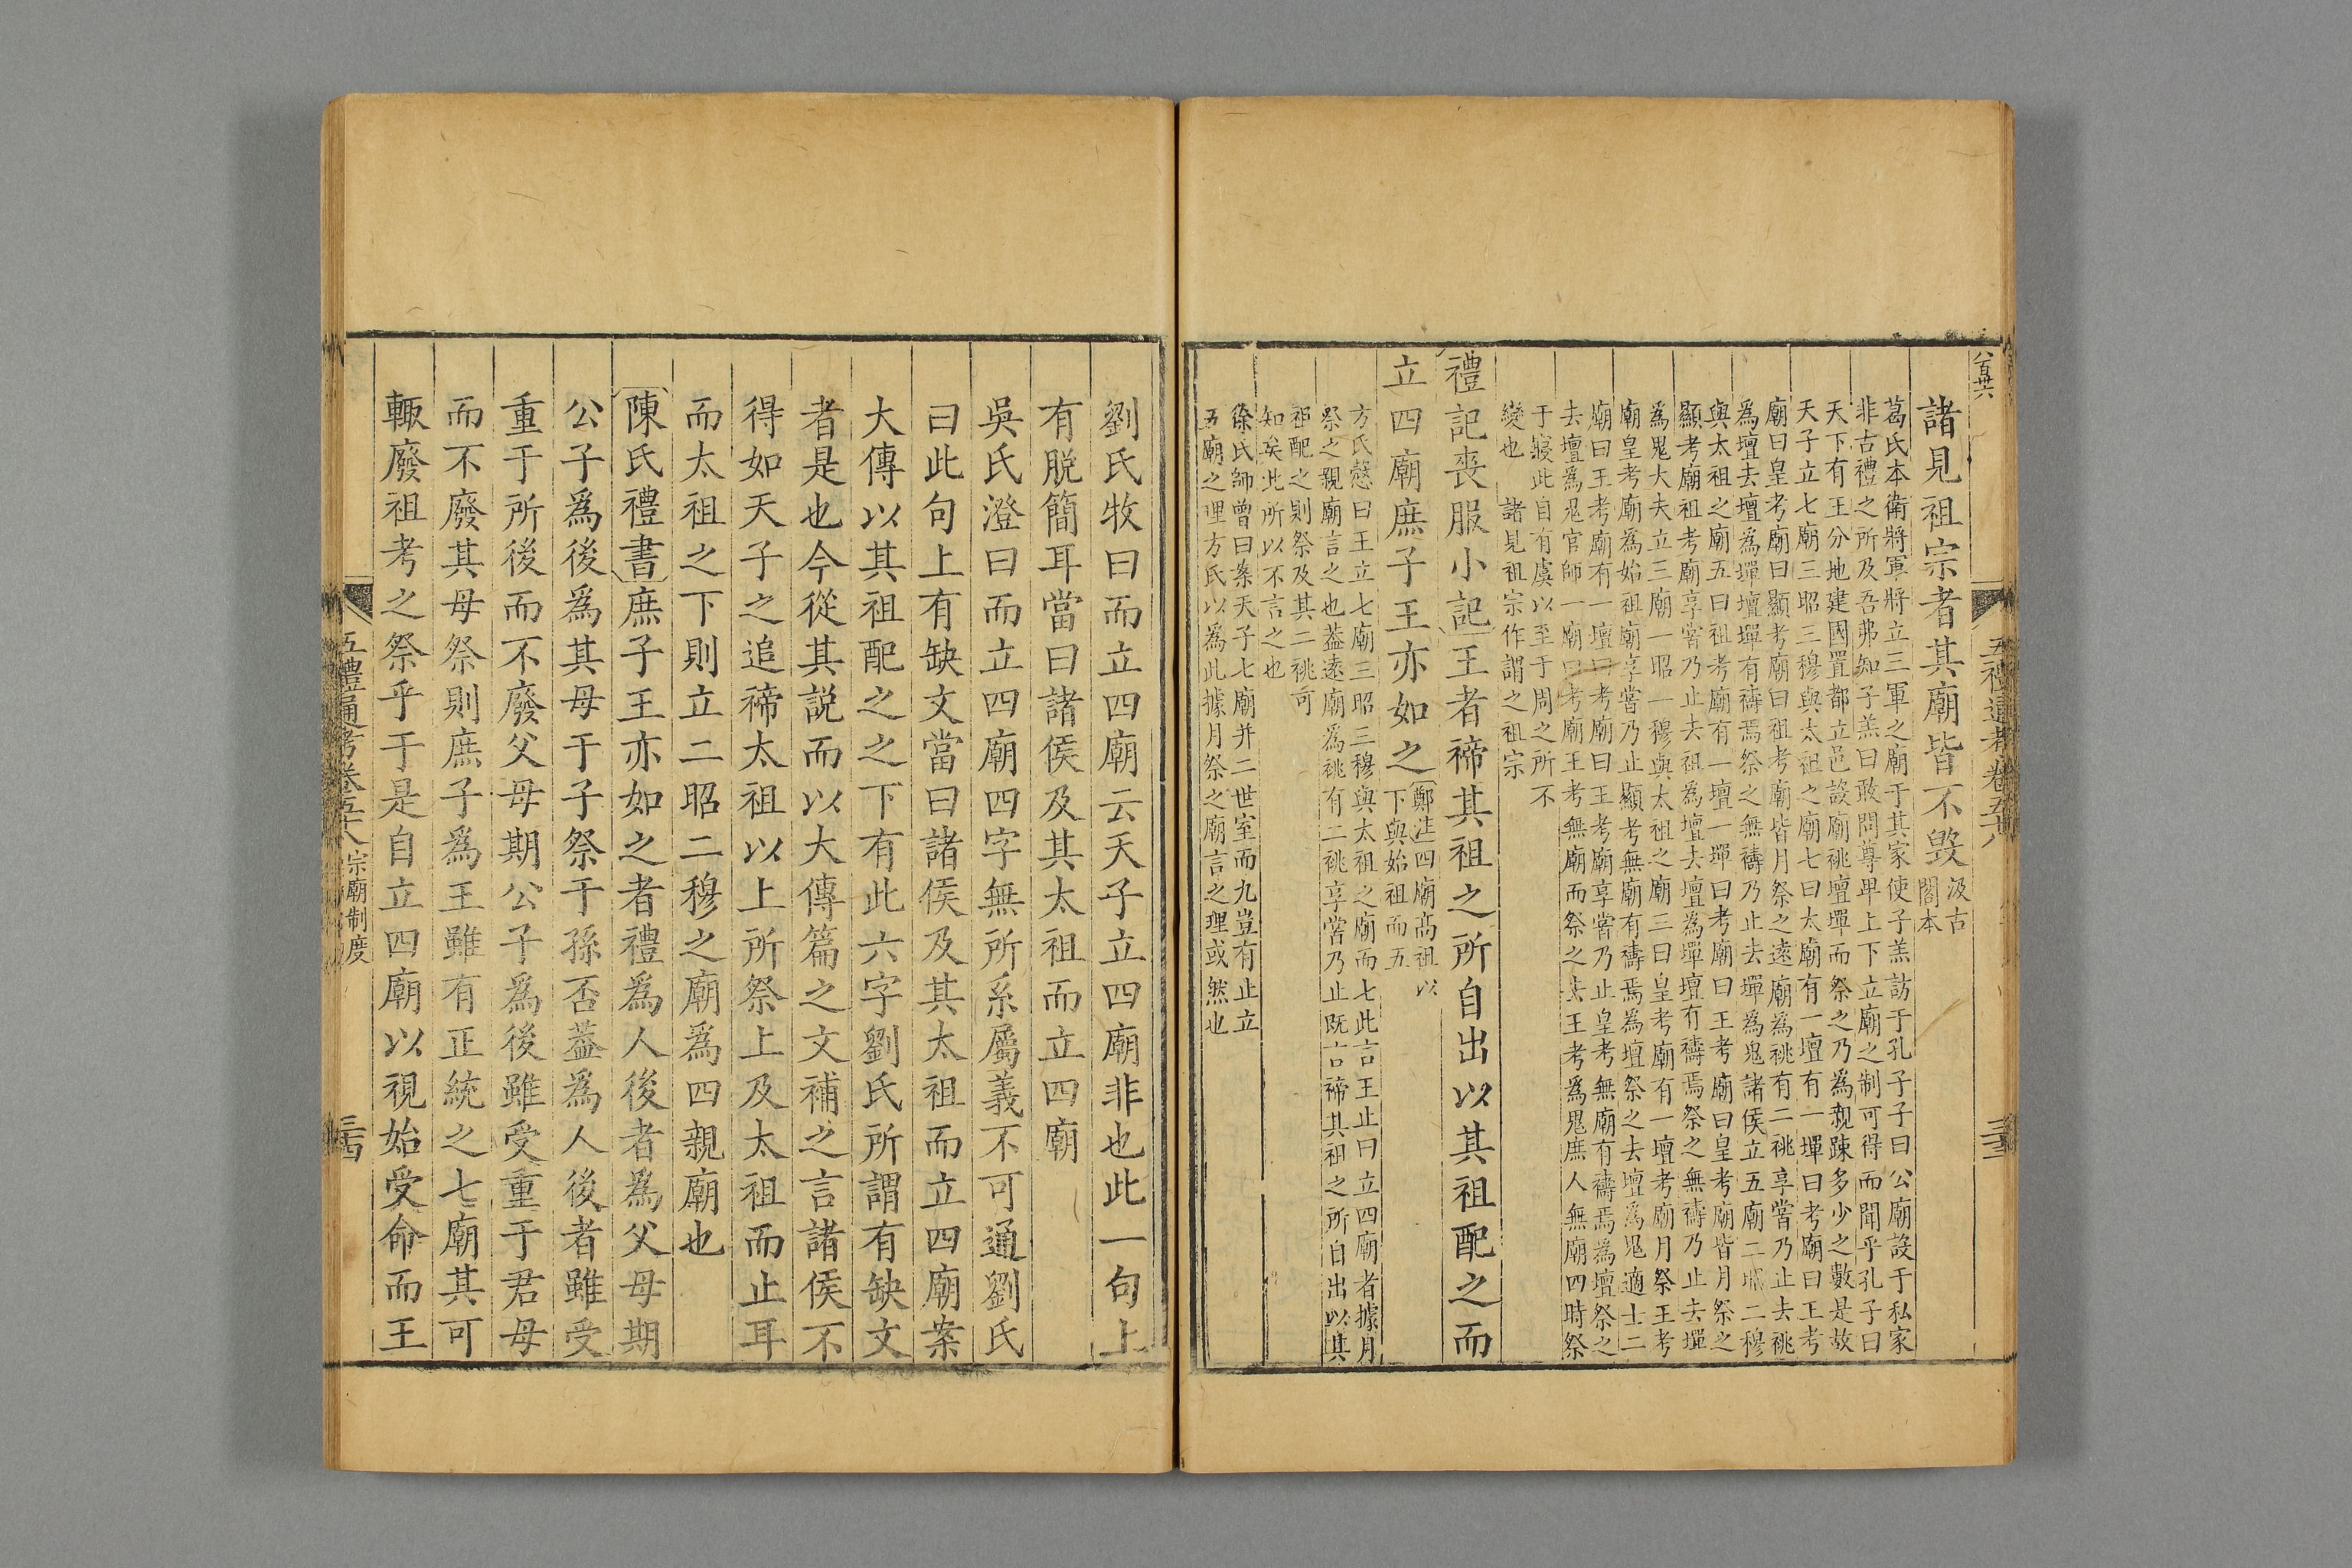 八百廿六
五禮通考卷五十八
三十三
諸見祖宗者其廟皆不毀汲古
閣本
葛氏本衛將軍將立三軍之廟于其家使子羔訪于孔子子曰公廟設于私家
非古禮之所及吾弗知子羔曰敢問尊卑上下立廟之制可得而聞乎孔子曰
天下有王分地建國置都立邑設廟祧壇墠而祭之乃為親踈多少之數是故
天子立七廟三昭三穆與太祖之廟七曰太廟有一壇有一墠曰考廟曰王考
廟曰皇考廟曰顯考廟曰祖考廟皆月祭之遠廟為祧有二祧享嘗乃止去祧
為壇去壇為墠壇墠有禱焉祭之無禱乃止去墠為鬼諸侯立五廟二昭二穆
與太祖之廟五曰祖考廟有一壇一墠曰考廟曰王考廟曰皇考廟皆月祭之
顯考廟祖考廟享嘗乃止去祖為壇去壇為墠壇有禱焉祭之無禱乃止去墠
為鬼大夫立三廟一昭一穆與太祖之廟三曰皇考廟有一壇考廟月祭王考
廟皇考廟為始祖廟享嘗乃止顯考無廟有禱焉為壇祭之去壇為鬼適士二
廟曰王考廟有一壇曰考廟曰王考廟享嘗乃止皇考無廟有禱焉為壇祭之
去壇為鬼官師一廟曰考廟王考無廟而祭之去王考為鬼庶人無廟四時祭
于寢此自有虞以至于周之所不
變也　諸見祖宗作謂之祖宗
禮記喪服小記王者禘其祖之所自出以其祖配之而
立四廟庶子王亦如之鄭注四廟高祖以
下與始祖而五
方氏慤曰王立七廟三昭三穆與太祖之廟而七此言王止曰立四廟者據月
祭之親廟言之也葢遠廟為祧有二祧享嘗乃止既言禘其祖之所自出以其
祖配之則祭及其二祧可
知矣此所以不言之也
徐氏師曾曰案天子七廟并二世室而九豈有止立
五廟之理方氏以為此據月祭之廟言之理或然也
劉氏牧曰而立四廟云天子立四廟非也此一句上
有脱簡耳當曰諸侯及其太祖而立四廟
吳氏澄曰而立四廟四字無所系屬義不可通劉氏
曰此句上有缺文當曰諸侯及其太祖而立四廟案
大傳以其祖配之之下有此六字劉氏所謂有缺文
者是也今從其説而以大傳篇之文補之言諸侯不
得如天子之追禘太祖以上所祭上及太祖而止耳
而太祖之下則立二昭二穆之廟為四親廟也
陳氏禮書庶子王亦如之者禮為人後者為父母期
公子為後為其母于子祭于孫否葢為人後者雖受
重于所後而不廢父母期公子為後雖受重于君母
而不廢其母祭則庶子為王雖有正統之七廟其可
輙廢祖考之祭乎于是自立四廟以視始受命而王
五禮通考卷五十八　宗廟制度
三十四